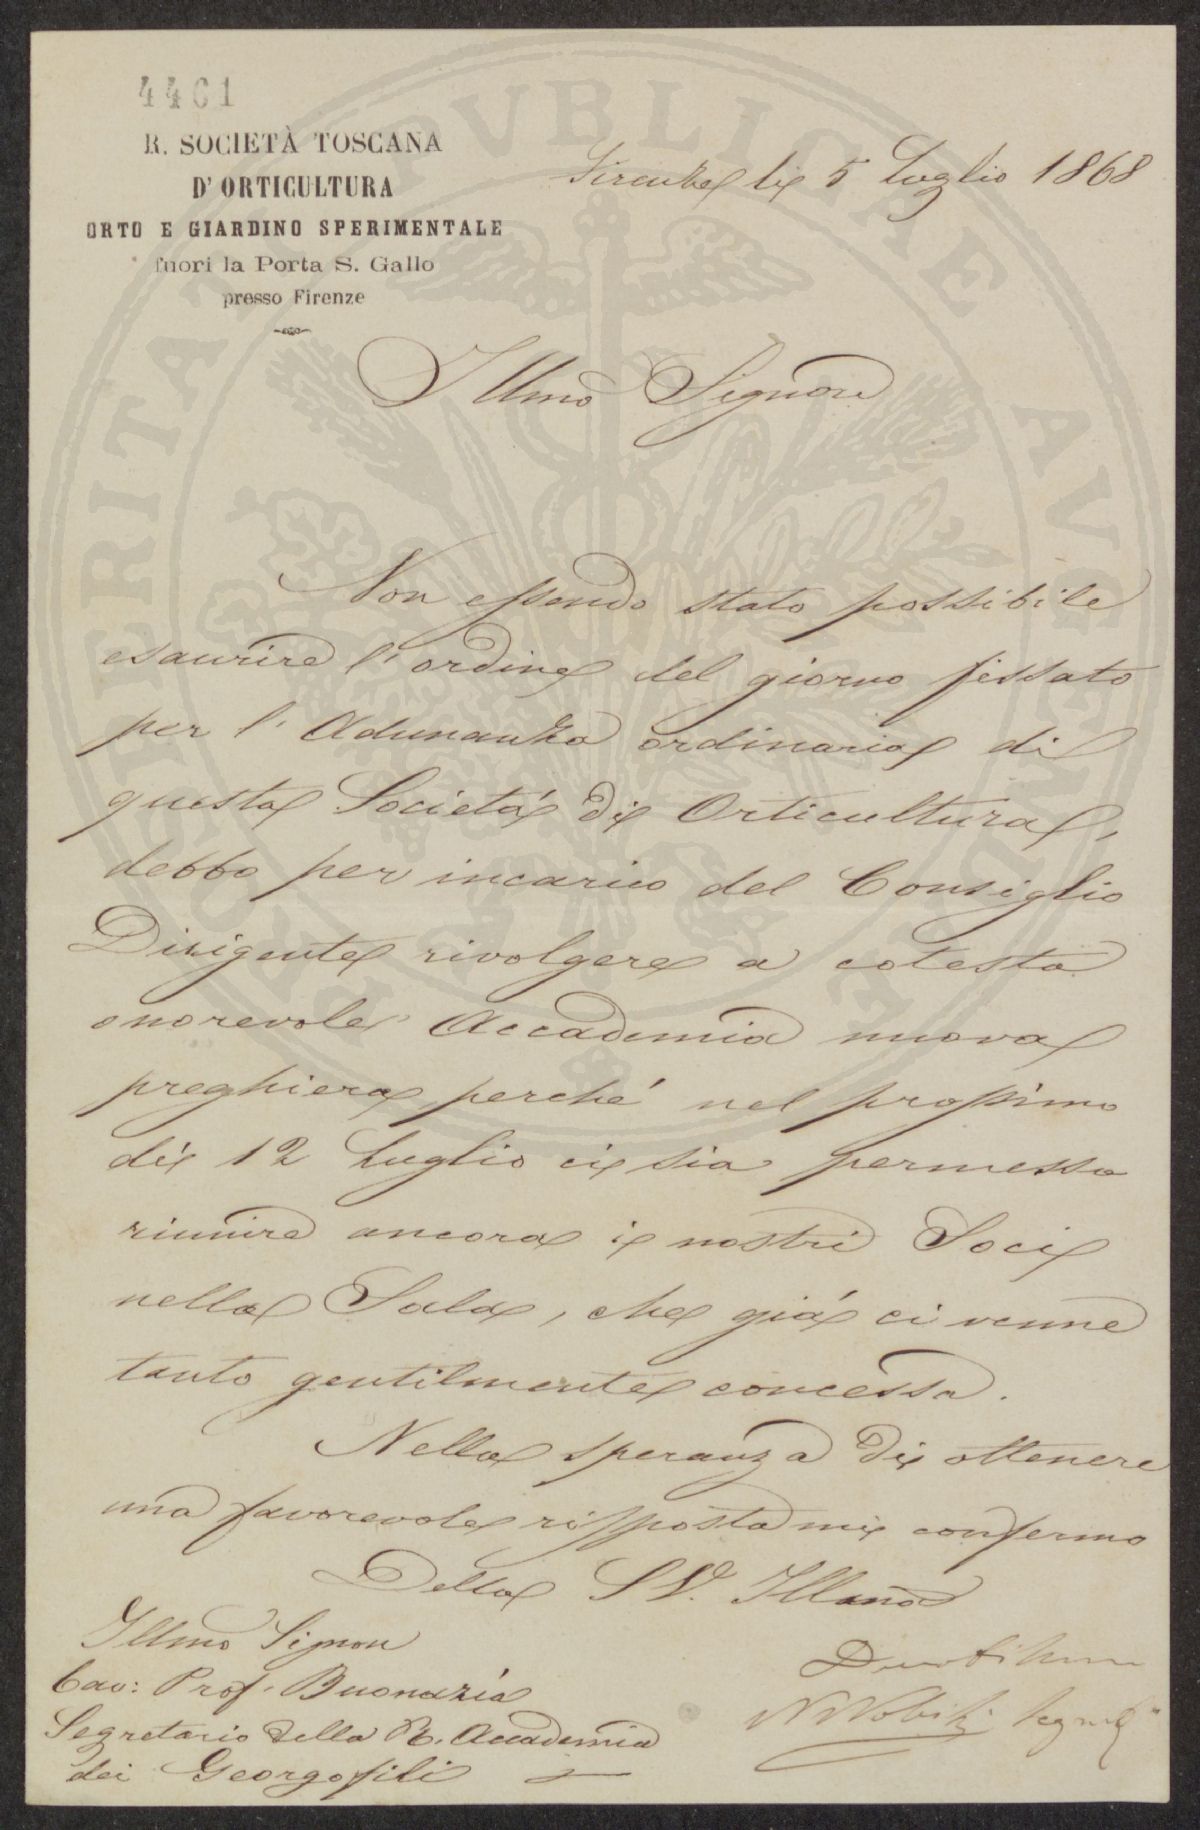 4461
R. SOCIETÀ TOSCANA
D'ORTICULTURA
ORTO E GIARDINO SPERIMENTALE
fuori la Porta S. Gallo
presso Firenze
Firenze li 5 Luglio 1868
Illmo Signore
Non essendo stato possibile
esaurire l'ordine del giorno fissato
per l'Adunanza ordinaria di
questa Società di Orticultura,
debbo per incarico del Consiglio
Dirigente rivolgere a cotesta
onorevole Accademia nuova
preghiera perché nel prossimo
dì 12 Luglio ci sia permesso
riunire ancora i nostri Soci
nella Sala, che già ci venne
tanto gentilmente concessa.
Nella speranza di ottenere
una favorevole risposta mi confermo
Della S V. Illma
Illmo Signore
Cav: Prof. Buonazia
Segretario della R. Accademia
dei Georgofili